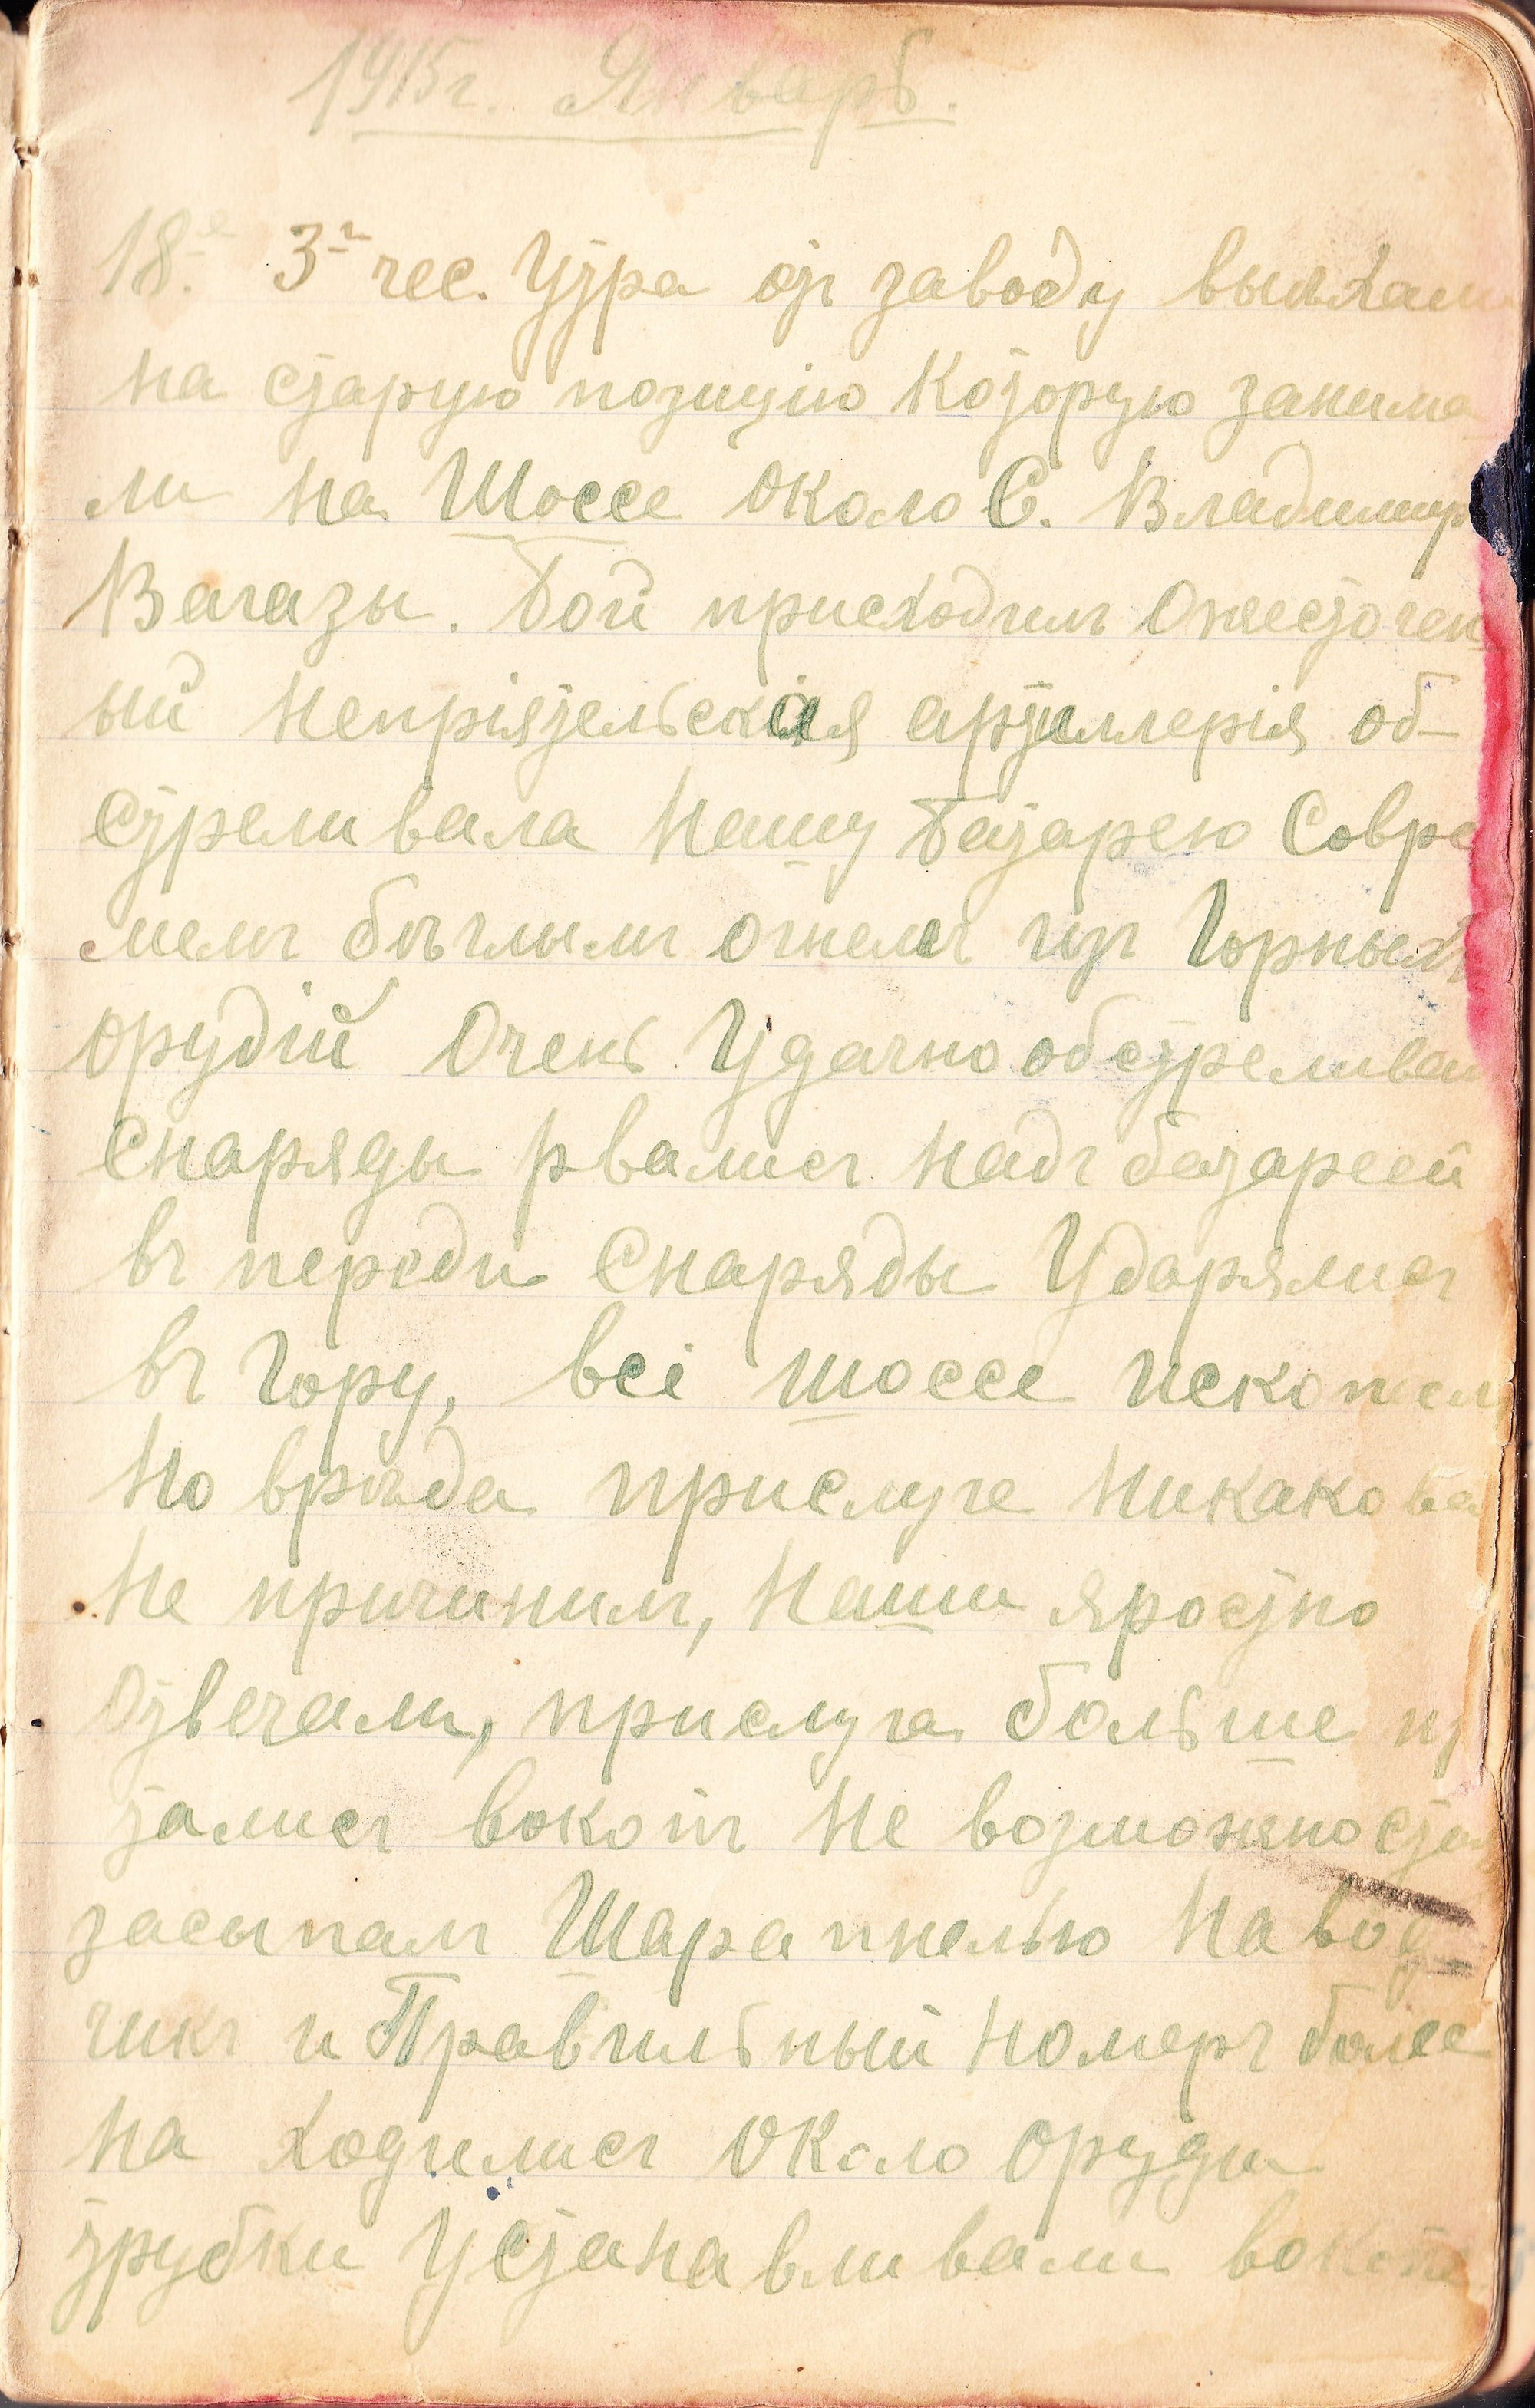 1915 г. Январь.
18.е 3г чес. Утра отъ заводу выѣхали
на старую позицію Которую занима
ли на Шоссе Около С. Владимир
Вагазы. Бой присходилъ Ожесточен
ый Непріятельская артиллерія об-
стреливала Нашу Батарею Совре
мемъ бѣглымъ огнемъ изъ Горныхъ
орудій Очень Удачно обстреливал
Снаряды рвались Надъ батареей
въ переди Снаряды Ударялись
въ Гору, всі шоссе Ископал
Но врѣда прислуге Никакова
Не причинилъ, Наши яростно
Отвечали, прислуга больше пр
талися вокопъ Не возможно стал
засыпалъ Шарапнелью Навод
чикъ и Правильный Номеръ более
На ходились Около орудя
трубки Устанавливали вокопе